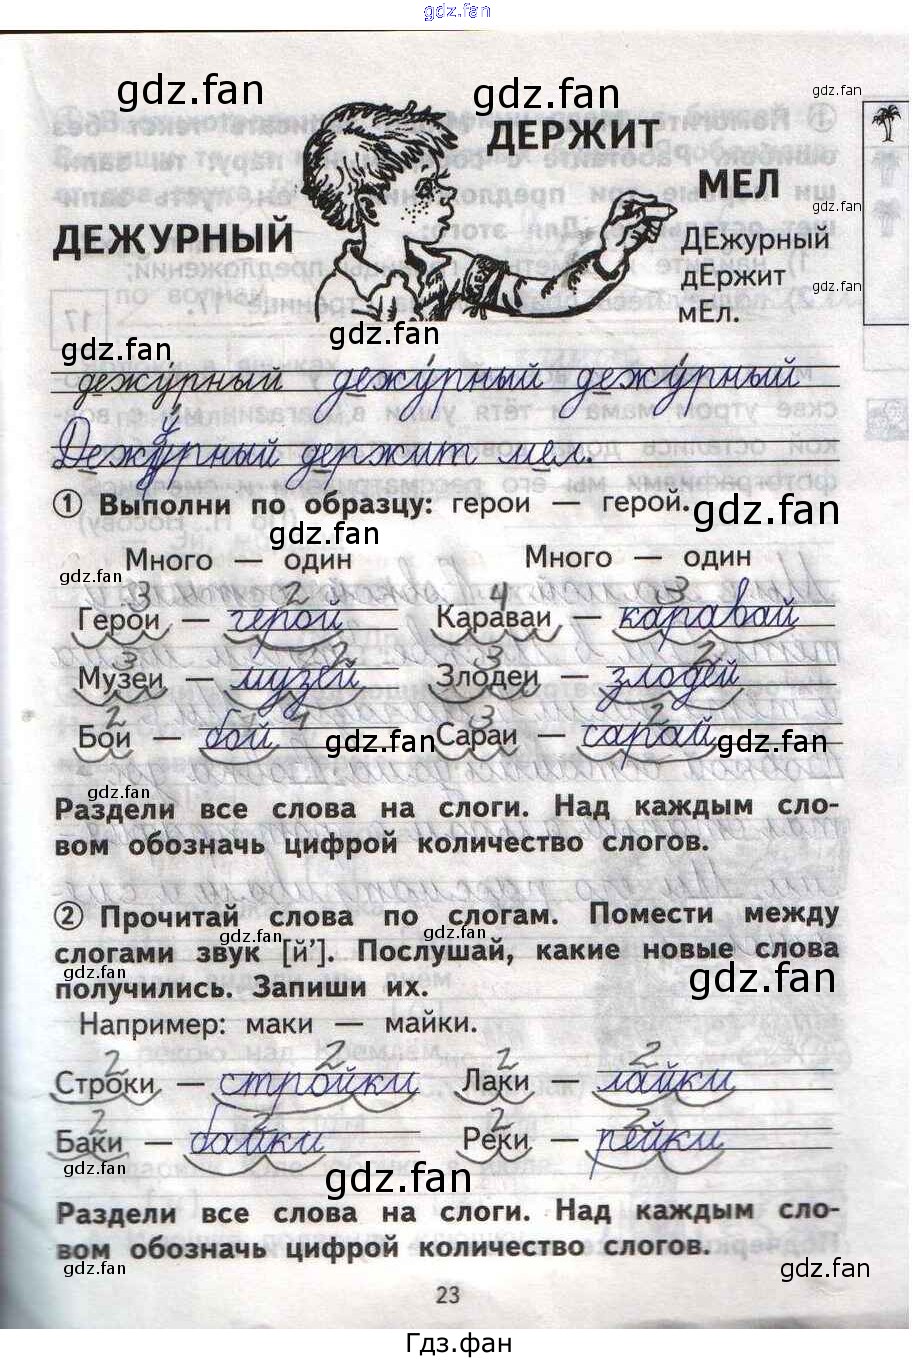 gdz.fan
gdz.fan
gdz.fan
gdz.fan
ДЕРЖИТ
МЕЛ
gdz.fan
ДЕЖУРНЫЙ
ДЕжурный
дЕржит
gdz.fan
мЕл.
gdz.fan
gdz.fan
дежу́рный дежу́рный дежу́рный
Дежу́рный держит мел.
① Выполни по образцу: герои — герой.
gdz.fan
gdz.fan
Много — один Много — один
gdz.fan
3 2 4 3
Герои — герой Караваи — каравай
3 2 3 2
Музеи — музей Злодеи — злодей
2 1 3 2
Бои — бой Сараи — сарай
gdz.fan
gdz.fan
gdz.fan
Раздели все слова на слоги. Над каждым сло-
вом обозначь цифрой количество слогов.
② Прочитай слова по слогам. Помести между
gdz.fan
gdz.fan
слогами звук [й’]. Послушай, какие новые слова
gdz.fan
gdz.fan
получились. Запиши их.
Например: маки — майки.
2 2 2 2
Строки — стройки Лаки — лайки
2 2 2 2
Баки — байки Реки — рейки
gdz.fan
gdz.fan
gdz.fan
Раздели все слова на слоги. Над каждым сло-
вом обозначь цифрой количество слогов.
gdz.fan
gdz.fan
23
Гдз.фан